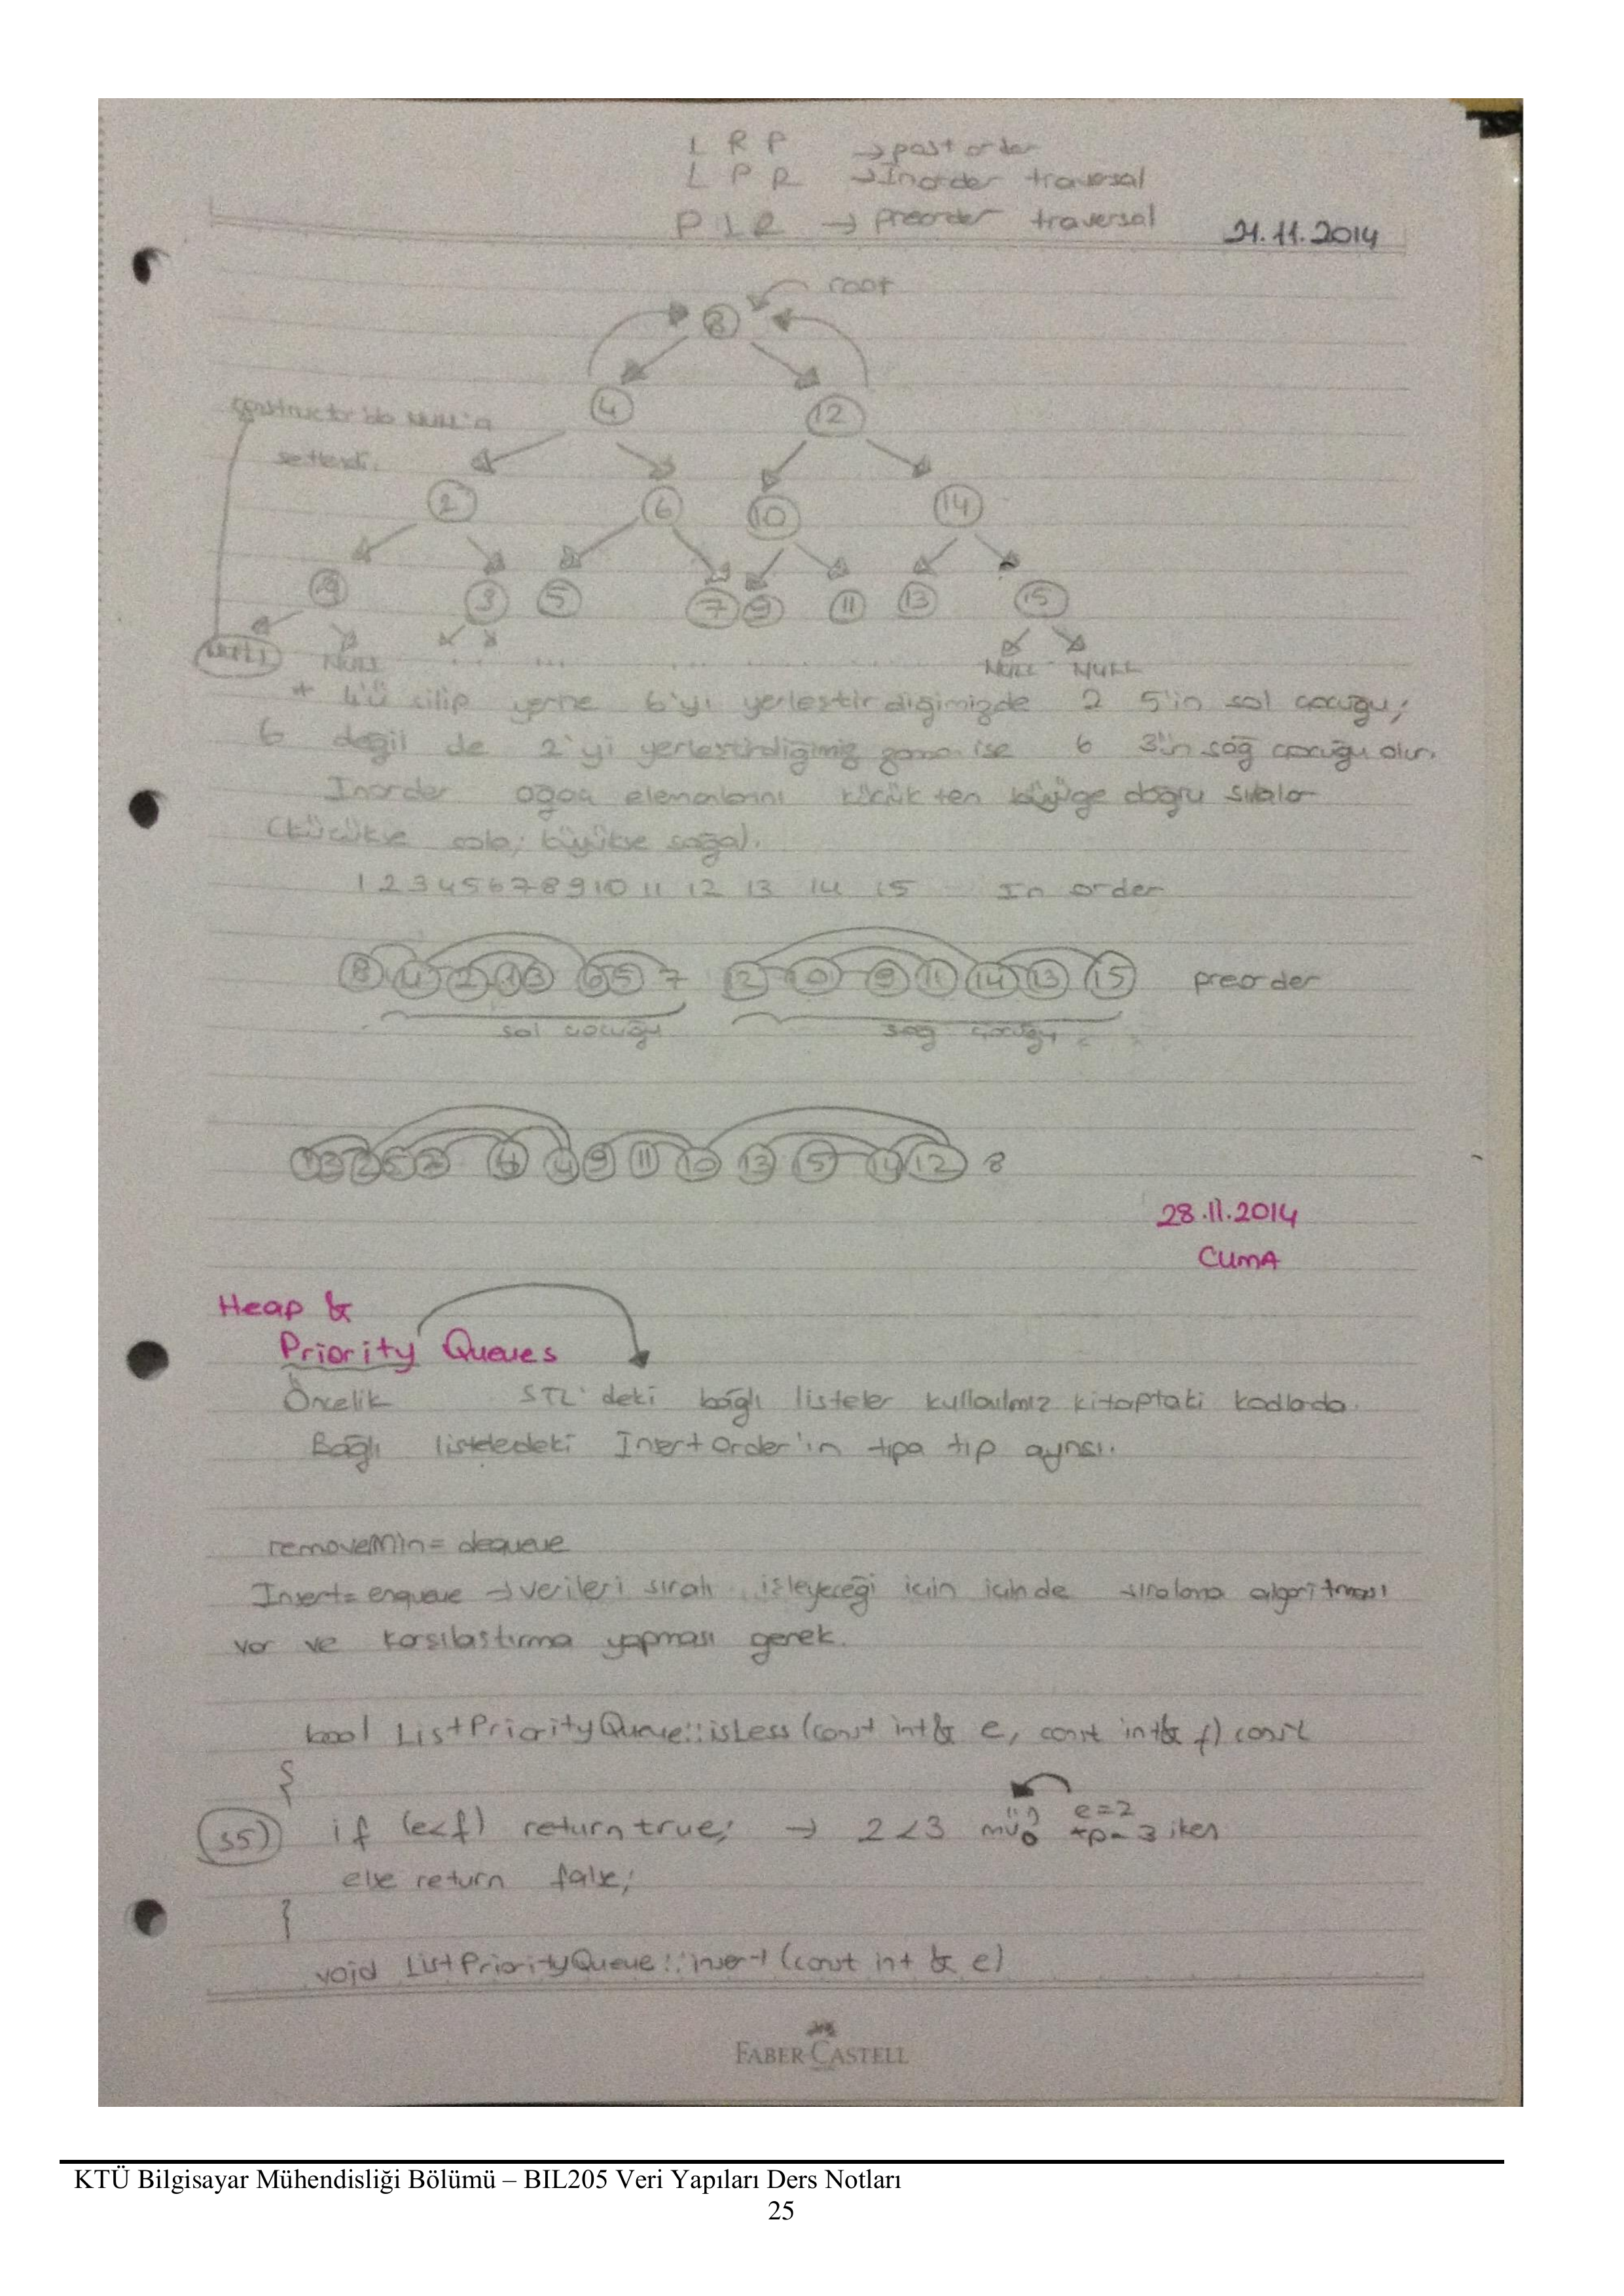 L R P → post order
L P R → Inorder traversal
P L R → preorder traversal
21.11.2014
root
8
4 12
constructor'da NULL'a
setlendi.
2 6 10 14
1 3 5 7 9 11 13 15
NULL NULL .. ... ... NULL NULL
+ 4'ü silip yerine 6'yı yerleştirdiğimizde 2 5'in sol çocuğu;
6 değil de 2'yi yerleştirdiğimiz zaman ise 6 3'ün sağ çocuğu olur.
Inorder ağaç elemanlarını küçükten büyüğe doğru sıralar
(küçükse sola; büyükse sağa).
1 2 3 4 5 6 7 8 9 10 11 12 13 14 15 In order
8 4 2 1 3 6 5 7 12 10 9 11 14 13 15 preorder
sol çocuğu sağ çocuğu
1 3 2 5 7 6 4 9 11 10 13 15 14 12 8
28.11.2014
CUMA
Heap &
Priority Queues
Öncelik STL'deki bağlı listeler kullanılmız kitaptaki kodlarda.
Bağlı listelerdeki InsertOrder'in tıpa tıp aynısı.
removeMin = dequeue
Insert = enqueue → verileri sıralı işleyeceği için içinde sıralama algoritması
var ve karşılaştırma yapması gerek.
bool ListPriorityQueue::isLess (const int& e, const int& f) const
{
35) if (e<f) return true; → 2<3 mü? e=2
*p=3 iken
else return false;
}
void ListPriorityQueue::insert (const int & e)
FABER-CASTELL
KTÜ Bilgisayar Mühendisliği Bölümü – BIL205 Veri Yapıları Ders Notları
25